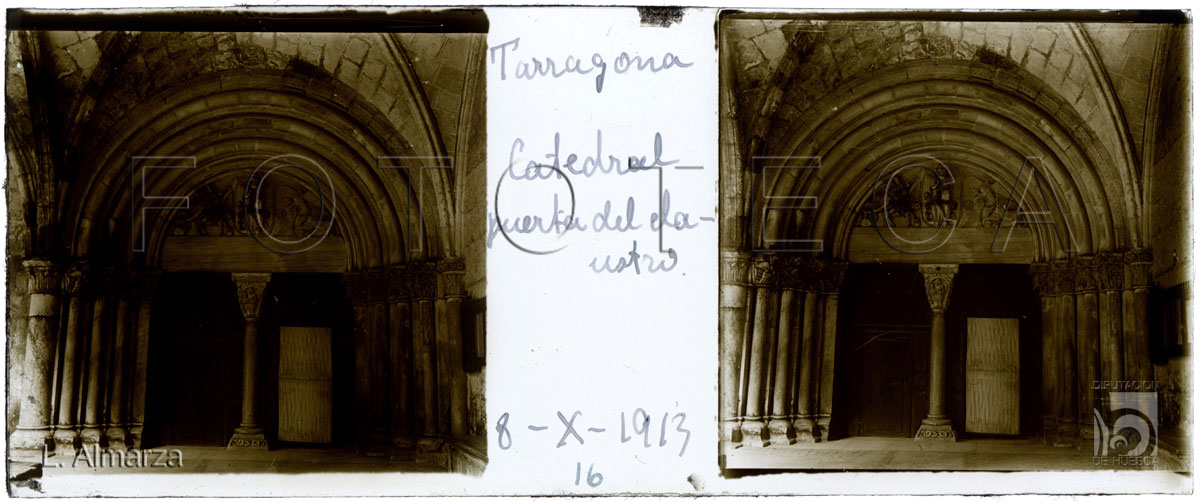 Tarragona
Catedral
puerta del cla-
ustro.
8-X-1913
16
FOTOTECA
L. Almarza
DIPUTACION
DE HUESCA